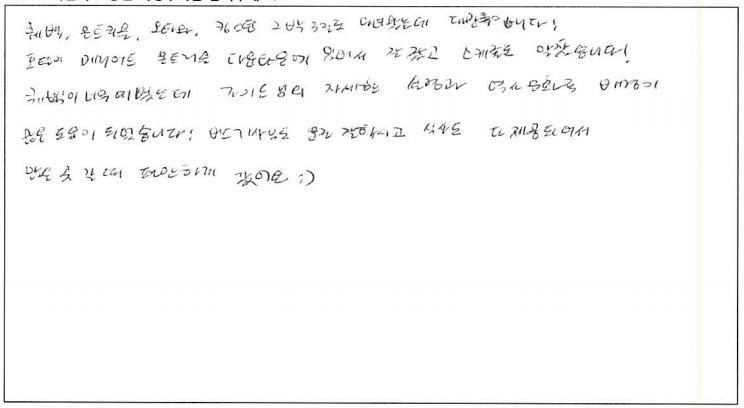 퀘백, 몬트리올, 오타와, 킹스턴 2박 3일로 다녀왔는데 대만족입니다!
포인트 메리어트 몬트리올 다운타운에 있어서 잘 잤고 스케줄도 알찼습니다!
퀘백이 너무 예뻤는데 가이드님의 자세한 설명과 역사 문화적 배경이
많은 도움이 되었습니다! 반기사님도 운전 잘하시고 식사도 다 제공되어서
만은 곳 갈때 편안하게 갔어요 :)